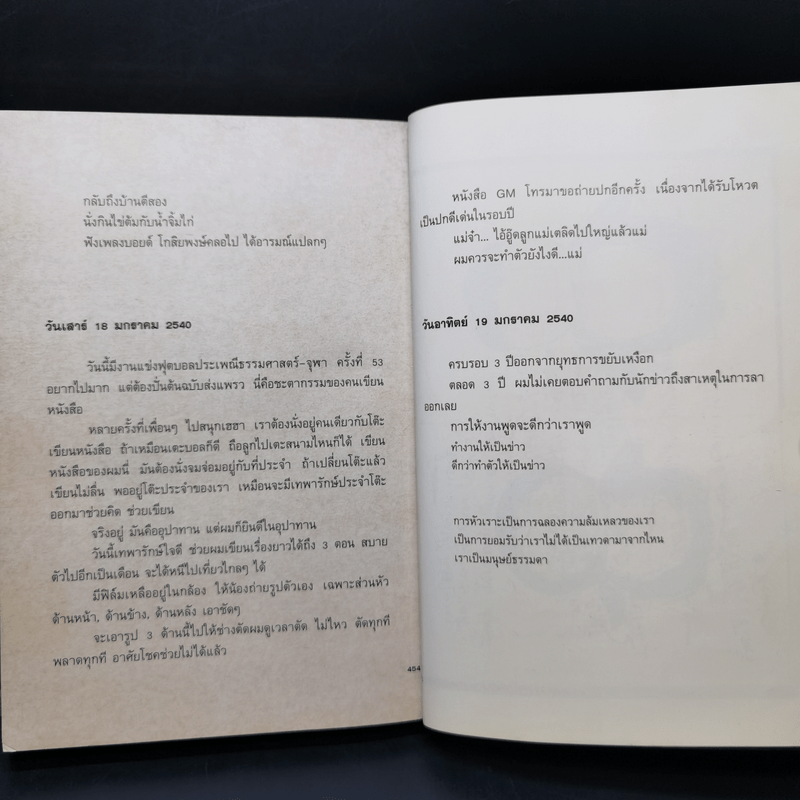 กลับถึงบ้านตีสอง
นั่งกินไข่ต้มกับน้ำจิ้มไก่
ฟังเพลงบอยด์ โกสิยพงษ์คลอไป ได้อารมณ์แปลกๆ
วันเสาร์ 18 มกราคม 2540
วันนี้มีงานแข่งฟุตบอลประเพณีธรรมศาสตร์-จุฬา ครั้งที่ 53
อยากไปมาก แต่ต้องปั่นต้นฉบับส่งแพรว นี่คือชะตากรรมของคนเขียน
หนังสือ
หลายครั้งที่เพื่อนๆ ไปสนุกเฮฮา เราต้องนั่งอยู่คนเดียวกับโต๊ะ
เขียนหนังสือ ถ้าเหมือนเตะบอลก็ดี ถือลูกไปเตะสนามไหนก็ได้ เขียน
หนังสือของผมนี่ มันต้องนั่งจมจ่อมอยู่กับที่ประจำ ถ้าเปลี่ยนโต๊ะแล้ว
เขียนไม่ลื่น พออยู่โต๊ะประจำของเรา เหมือนจะมีเทพารักษ์ประจำโต๊ะ
ออกมาช่วยคิด ช่วยเขียน
จริงอยู่ มันคืออุปาทาน แต่ผมก็ยินดีในอุปาทาน
วันนี้เทพารักษ์ใจดี ช่วยผมเขียนเรื่องยาวได้ถึง 3 ตอน สบาย
ตัวไปอีกเป็นเดือน จะได้หนีไปเที่ยวไกลๆ ได้
มีฟิล์มเหลืออยู่ในกล้อง ให้น้องถ่ายรูปตัวเอง เฉพาะส่วนหัว
ด้านหน้า, ด้านข้าง, ด้านหลัง เอาชัดๆ
จะเอารูป 3 ด้านนี้ไปให้ช่างตัดผมดูเวลาตัด ไม่ไหว ตัดทุกที
พลาดทุกที อาศัยโชคช่วยไม่ได้แล้ว
454
หนังสือ GM โทรมาขอถ่ายปกอีกครั้ง เนื่องจากได้รับโหวต
เป็นปกดีเด่นในรอบปี
แม่จ๋า... ไอ้อู๊ดลูกแม่เตลิดไปใหญ่แล้วแม่
ผมควรจะทำตัวยังไงดี...แม่
วันอาทิตย์ 19 มกราคม 2540
ครบรอบ 3 ปีออกจากยุทธการขยับเหงือก
ตลอด 3 ปี ผมไม่เคยตอบคำถามกับนักข่าวถึงสาเหตุในการลา
ออกเลย
การให้งานพูดจะดีกว่าเราพูด
ทำงานให้เป็นข่าว
ดีกว่าทำตัวให้เป็นข่าว
การหัวเราะเป็นการฉลองความล้มเหลวของเรา
เป็นการยอมรับว่าเราไม่ได้เป็นเทวดามาจากไหน
เราเป็นมนุษย์ธรรมดา